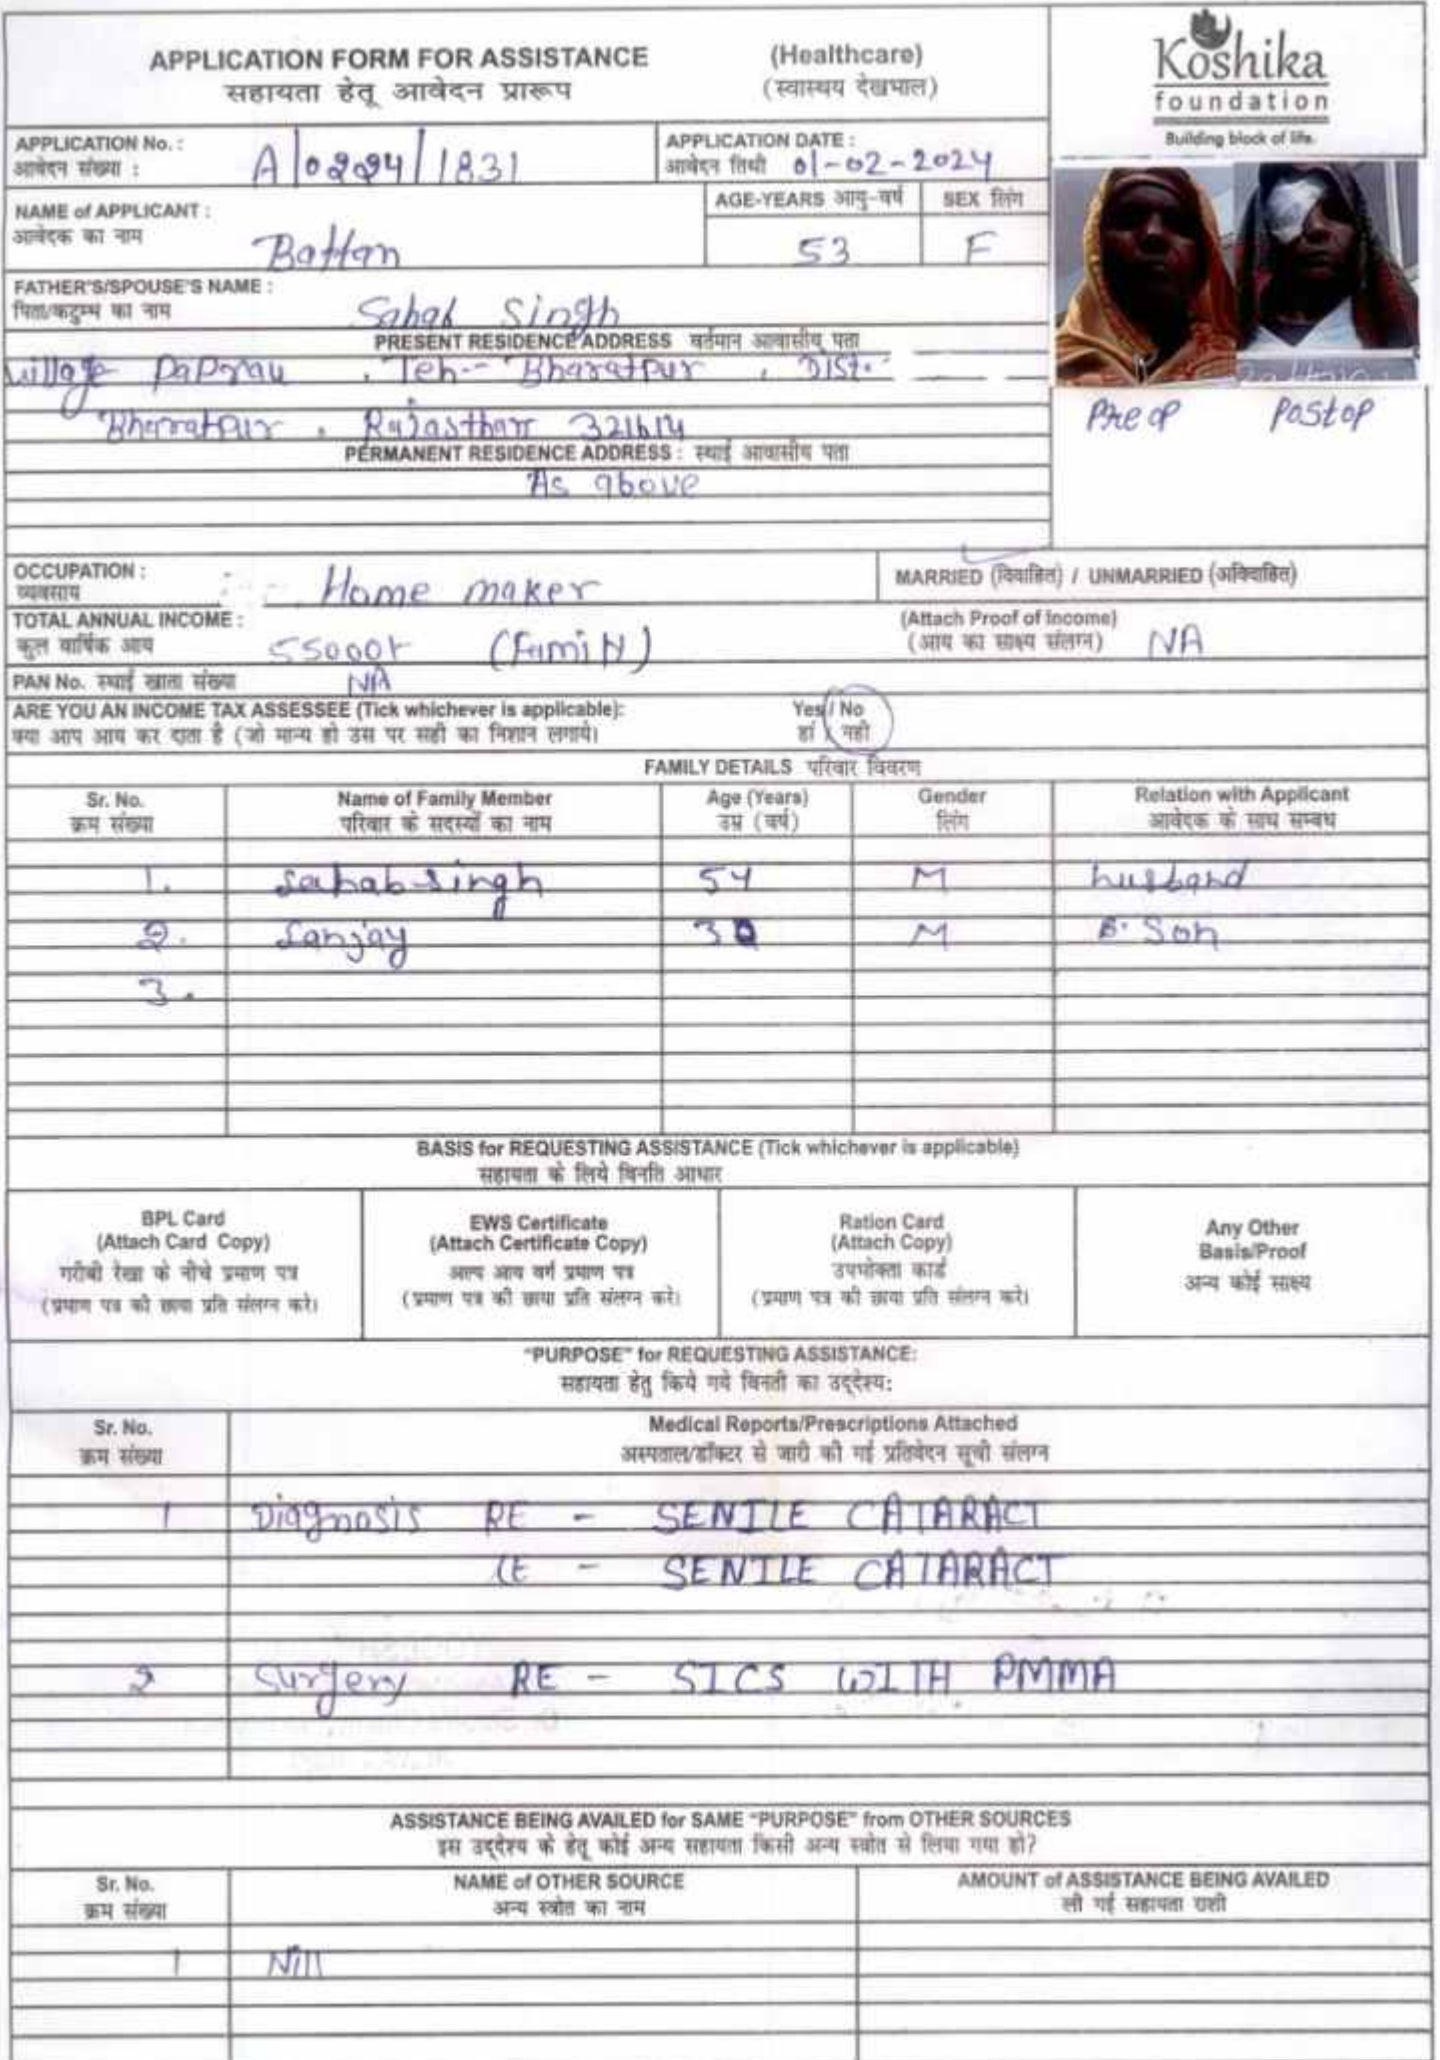 APPLICATION FORM FOR ASSISTANCE (Healthcare)
सहायता हेतू आवेदन प्रारूप (स्वास्थय देखभाल)
Koshika
foundation
Building block of life.
APPLICATION No. :
आवेदन संख्या : A/0224/1831
APPLICATION DATE :
आवेदन तिथी 01-02-2024
NAME of APPLICANT :
आवेदक का नाम Battan
AGE-YEARS आयु-वर्ष SEX लिंग
53 F
FATHER'S/SPOUSE'S NAME :
पिता/कटुम्ब का नाम Sahab Singh
PRESENT RESIDENCE ADDRESS वर्तमान आवासीय पता
village Paprau , Teh-- Bharatpur , Dist.-
Bharatpur , Rajasthan 321614
Pre op Post op
PERMANENT RESIDENCE ADDRESS : स्थाई आवासीय पता
As above
OCCUPATION :
व्यवसाय Home maker
MARRIED (विवाहित) / UNMARRIED (अविवाहित)
TOTAL ANNUAL INCOME :
कुल वार्षिक आय (Family)
(Attach Proof of Income)
(आय का साक्ष्य संलग्न) NA
PAN No. स्थाई खाता संख्या NA
ARE YOU AN INCOME TAX ASSESSEE (Tick whichever is applicable): Yes / No
क्या आप आय कर दाता है (जो मान्य हो उस पर सही का निशान लगाये। हां / नही
FAMILY DETAILS परिवार विवरण
Sr. No. Name of Family Member Age (Years) Gender Relation with Applicant
क्रम संख्या परिवार के सदस्यों का नाम उम्र (वर्ष) लिंग आवेदक के साथ सम्बध
1. Sahab Singh 54 M husband
2. Sanjay M Son
3.
BASIS for REQUESTING ASSISTANCE (Tick whichever is applicable)
सहायता के लिये विनति आधार
BPL Card
(Attach Card Copy)
गरीबी रेखा के नीचे प्रमाण पत्र
(प्रमाण पत्र की छाया प्रति संलग्न करे।
EWS Certificate
(Attach Certificate Copy)
अल्प आय वर्ग प्रमाण पत्र
(प्रमाण पत्र की छाया प्रति संलग्न करे।
Ration Card
(Attach Copy)
उपभोक्ता कार्ड
(प्रमाण पत्र की छाया प्रति संलग्न करे।
Any Other
Basis/Proof
अन्य कोई साक्ष्य
"PURPOSE" for REQUESTING ASSISTANCE:
सहायता हेतु किये गये विनती का उद्देश्य:
Sr. No. Medical Reports/Prescriptions Attached
क्रम संख्या अस्पताल/डॉक्टर से जारी की गई प्रतिवेदन सूची संलग्न
1 Diagnosis RE - SENILE CATARACT
LE - SENILE CATARACT
2 Surgery RE - SICS WITH PMMA
ASSISTANCE BEING AVAILED for SAME "PURPOSE" from OTHER SOURCES
इस उद्देश्य के हेतू कोई अन्य सहायता किसी अन्य स्त्रोत से लिया गया हो?
Sr. No. NAME of OTHER SOURCE AMOUNT of ASSISTANCE BEING AVAILED
क्रम संख्या अन्य स्त्रोत का नाम ली गई सहायता राशी
1 Nill